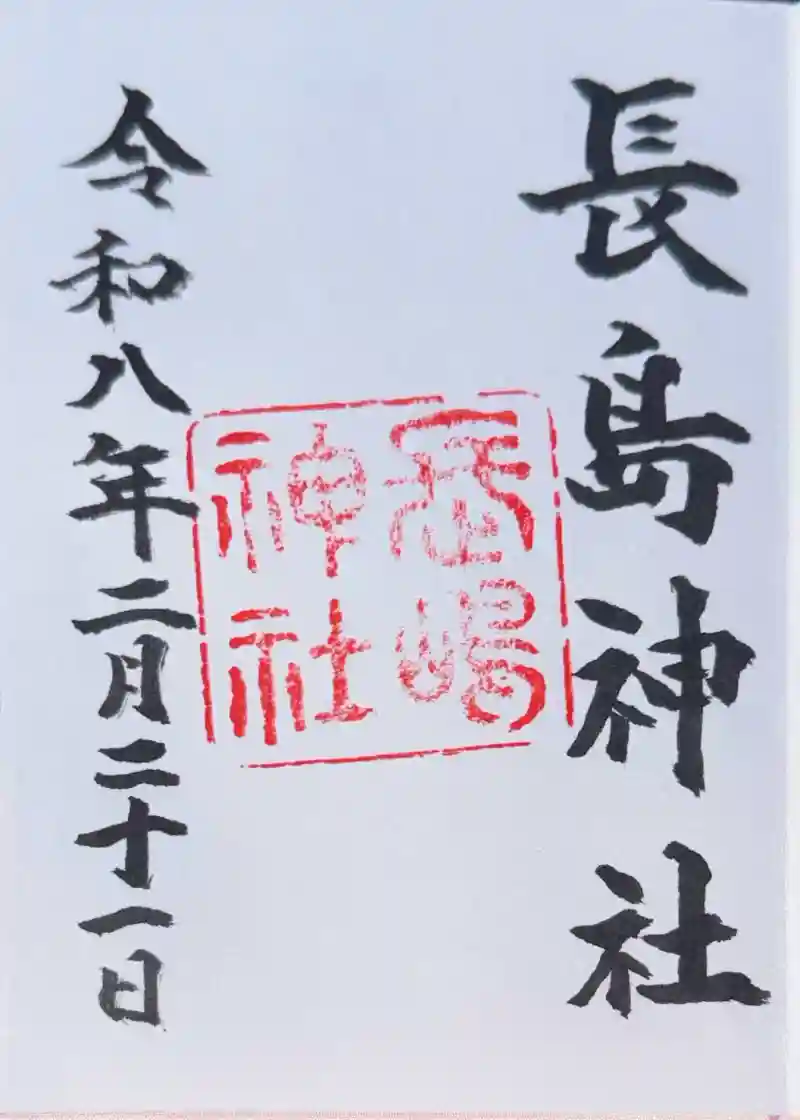 長島神社
長嶋
神社
令和八年二月二十一日